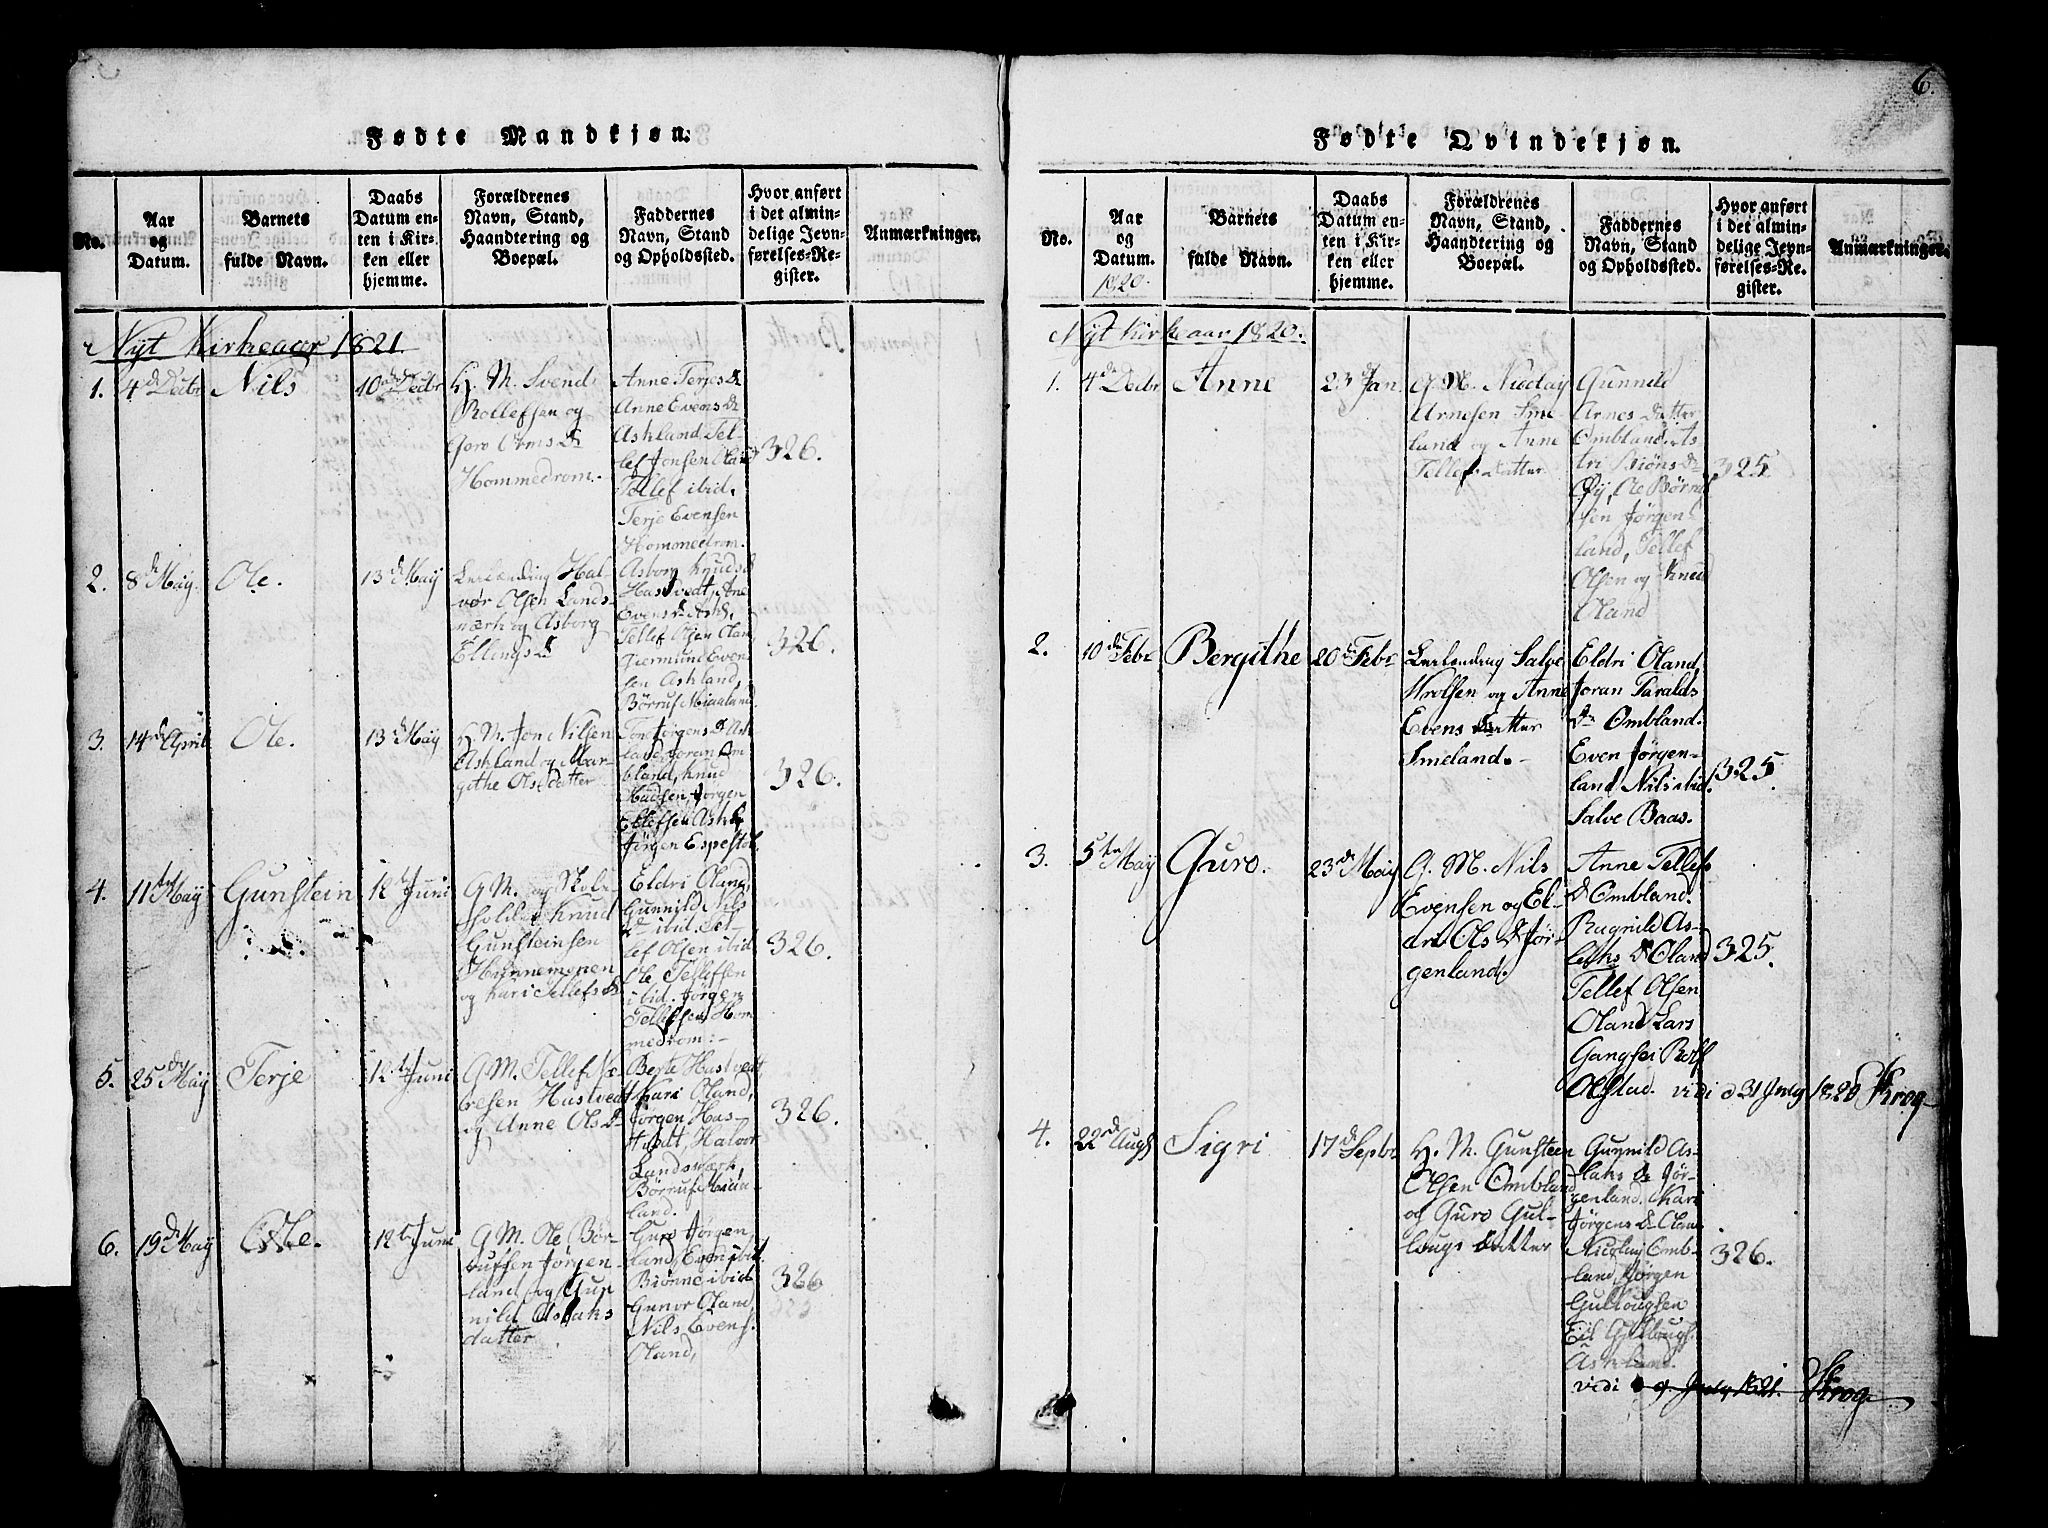 6.
Fødte Mandkjøn.
No.
Aar
og
Datum.
Barnets
fulde Navn.
Daabs
Datum en-
ten i Kir-
ken eller
hjemme.
Forældrenes
Navn, Stand,
Haandtering og
Boepæl.
Faddernes
Navn, Stand
og Opholdssted.
Hvor anført
i det almin-
delige Jevn-
førelses-Re-
gister.
Anmærkninger.
Nyt Kirkeaar 1821.
1.
4de Decbr
Nils
10de Decbr
H. M. Svend
Rollefsen og
Goro Orms D
Hommedrom.
Anne Terjes D
Anne Evens D
Askland Tel-
lef Jonsen Oland
Tellef ibid.
Terje Evensen
Hommedrom.
326.
2.
8de May.
Ole.
13de May
Leilænding Hal-
vor Olsen Lands-
mærk og Asborg
Ellings D
Asborg Knuds D
Hustvedt, Ane
Evens D Askl.
Tellef Olsen Oland
Giermund Even
sen Askland,
Børruf Miaaland
326.
3.
14de April
Ole.
13de May
H. M. Jon Nilsen
Askland og Mar-
githe Ols datter
Tone Jørgens D Ask
land Joran Om
bland, Knud
Madsen, Jørgen
Ellefsen Askl.
Jørgen Espestøl
326.
4.
11te May
Gunstein
12te Juni
G. M. og Skole
holder Knud
Gunsteinsen
Hunnemonen
og Kari Tellefs D
Eldri Oland,
Gunnild Nils
D ibid. Tel-
lef Olsen ibid
Ole Tellefsen
ibid. Jørgen
Tellefsen Hom
medrom:-
326.
5.
25de May
Terje
12te Juni
G. M. Tellef
Hustvedt
og Anne Ols D
Berte Hustvedt
Kari Oland,
Jørgen Hus-
tvedt, Halvor
Landsmærk,
Børruf Miaa-
land.
326.
6.
19de May
Ole.
12te Juni
G. M. Ole Bør-
rufsen Jørgen-
land og Gun
nild Aslaks
datter
Guro Jørgen
land, Even ibid.
Biønne ibid
Gunor Oland
Nils Evens.
Oland,
326
Fødte Qvindekjøn.
No.
Aar
og
Datum.
1820.
Barnets
fulde Navn.
Daabs
Datum en-
ten i Kir-
ken eller
hjemme.
Forældrenes
Navn, Stand,
Haandtering og
Boepæl.
Faddernes
Navn, Stand
og Opholdssted.
Hvor anført
i det almin-
delige Jevn-
førelses-Re-
gister.
Anmærkninger.
Nyt Kirkeaar 1820.
1.
4de Decbr
Anne
23de Jan
G. M. Nicolay
Arnesen Sme-
land og Anne
Tellefs datter
Gunnild
Arnes datter
Ombland, As
tri Biøns D
Øy, Ole Børruf
sen Jørgen
land, Tellef
Olsen og Knud
Oland
325
2.
10de Febr
Bergithe
20de Febr
Leilending Salve
Wrolsen og Anne
Evens datter
Smeland.-
Eldri Oland,
Joran Taralds
D Ombland.
Even Jørgen-
land Nils ibid.
Salve Baas.
325.
3.
5te May
Guro.
23de May
G. M. Nils
Evensen og El-
dri Ols D Jør-
genland.
Anne Tellefs
D Ombland.
Ragnild As-
laks D Oland
Tellef Olsen
Oland Lars
Gangsei Rolf
Olstad. vidi d 31 July 1820 Krog
325.
4.
22de Augs
Sigri
17de Septbr
H. M. Gunsteen
Olsen Ombland
og Guro Gul-
lougs datter
Gunnild As-
laks D Jør-
genland. Kari
Jørgens D Oland
Nicolay Omb-
land, Jørgen
Gullougsen
Eil Gullougs.
Askland.
326.
vidi 9 July 1821. Krog